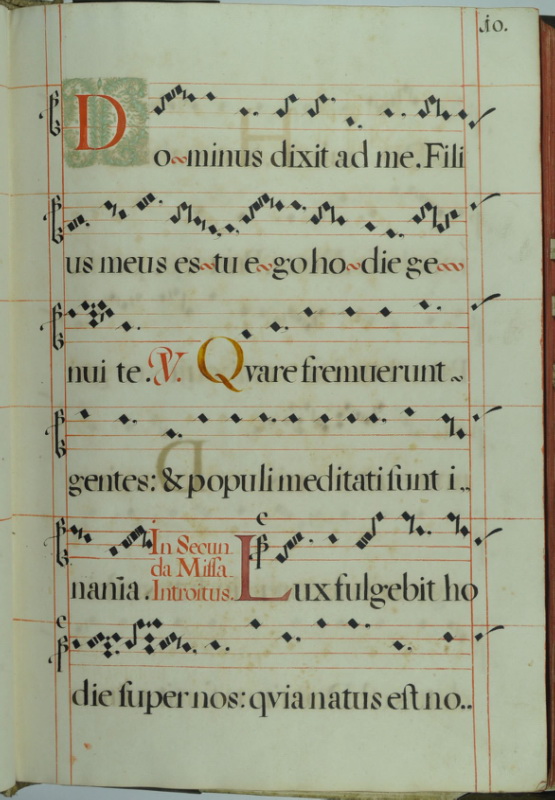 .10.
Do~minus dixit ad me. Fili
us meus es~tu e~go ho~die ge~~
nui te. ℣. Qvare fremuerunt~
gentes: & populi meditati sunt i..
nania. In Secun-
da Missa.
Introitus. Lux fulgebit ho
die super nos: qvia natus est no..